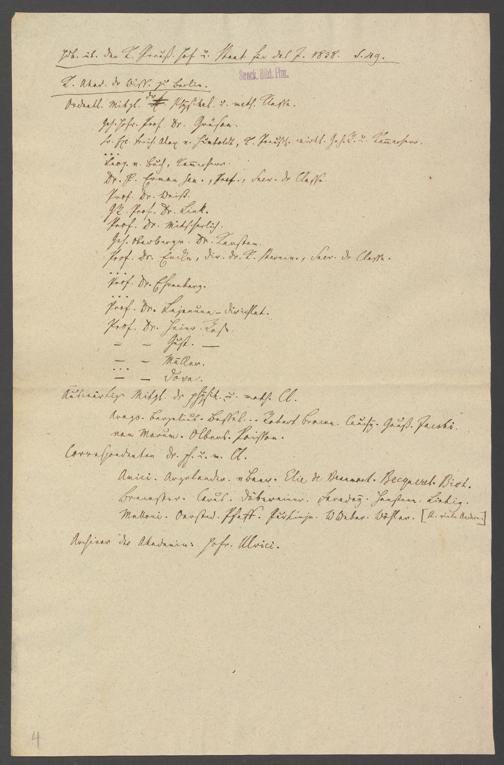 Hdb. üb. den K. Preuß. Hof u. Staat für das J. 1838. S. 49.
Senck. Bibl. Ffm.
K. Akad. der Wiss. zu Berlin.
Ordentl. Mitgl. der physikal. u. math. Classe.
Geh. Hofr. Prof. Dr. Gruson.
Alex. v. Humboldt, K. Preuß. wirkl. Geh. R. u. Kammerherr.
...
Leop. v. Buch, Kammerherr.
Dr. P. Erman sen., Prof., Secr. der Classe.
Prof. Dr. Weiß.
Prof. Dr. Link.
Prof. Dr. Mitscherlich.
Geh. Oberbergr. Dr. Karsten.
Prof. Dr. Encke, Dir. der K. Sternw., Secr. der Classe.
...
Prof. Dr. Ehrenberg.
...
Prof. Dr. Lejeune-Dirichlet.
Prof. Dr. Heinr. Rose.
— — Gust. —
— — Müller.
...
— — Dove.
Auswärtige Mitgl. der physik. u. math. Cl.
Arago. Berzelius. Bessel. .. Robert Brown. Cauchy. Gauß. Jacobi.
van Marum. Olbers. Poisson.
Correspondenten der ph. u. m. Cl.
Amici. Argelander. v Baer. Elie de Beaumont. Becquerel. Biot.
Brewster. Carus. Döbereiner. Faraday. Hansteen. Liebig.
Melloni. Oersted. Pfaff. Purkinje. W Weber. Wöhler. [u. viele Andere]
Archivar der Akademie: Hofr. Ulrici.
4